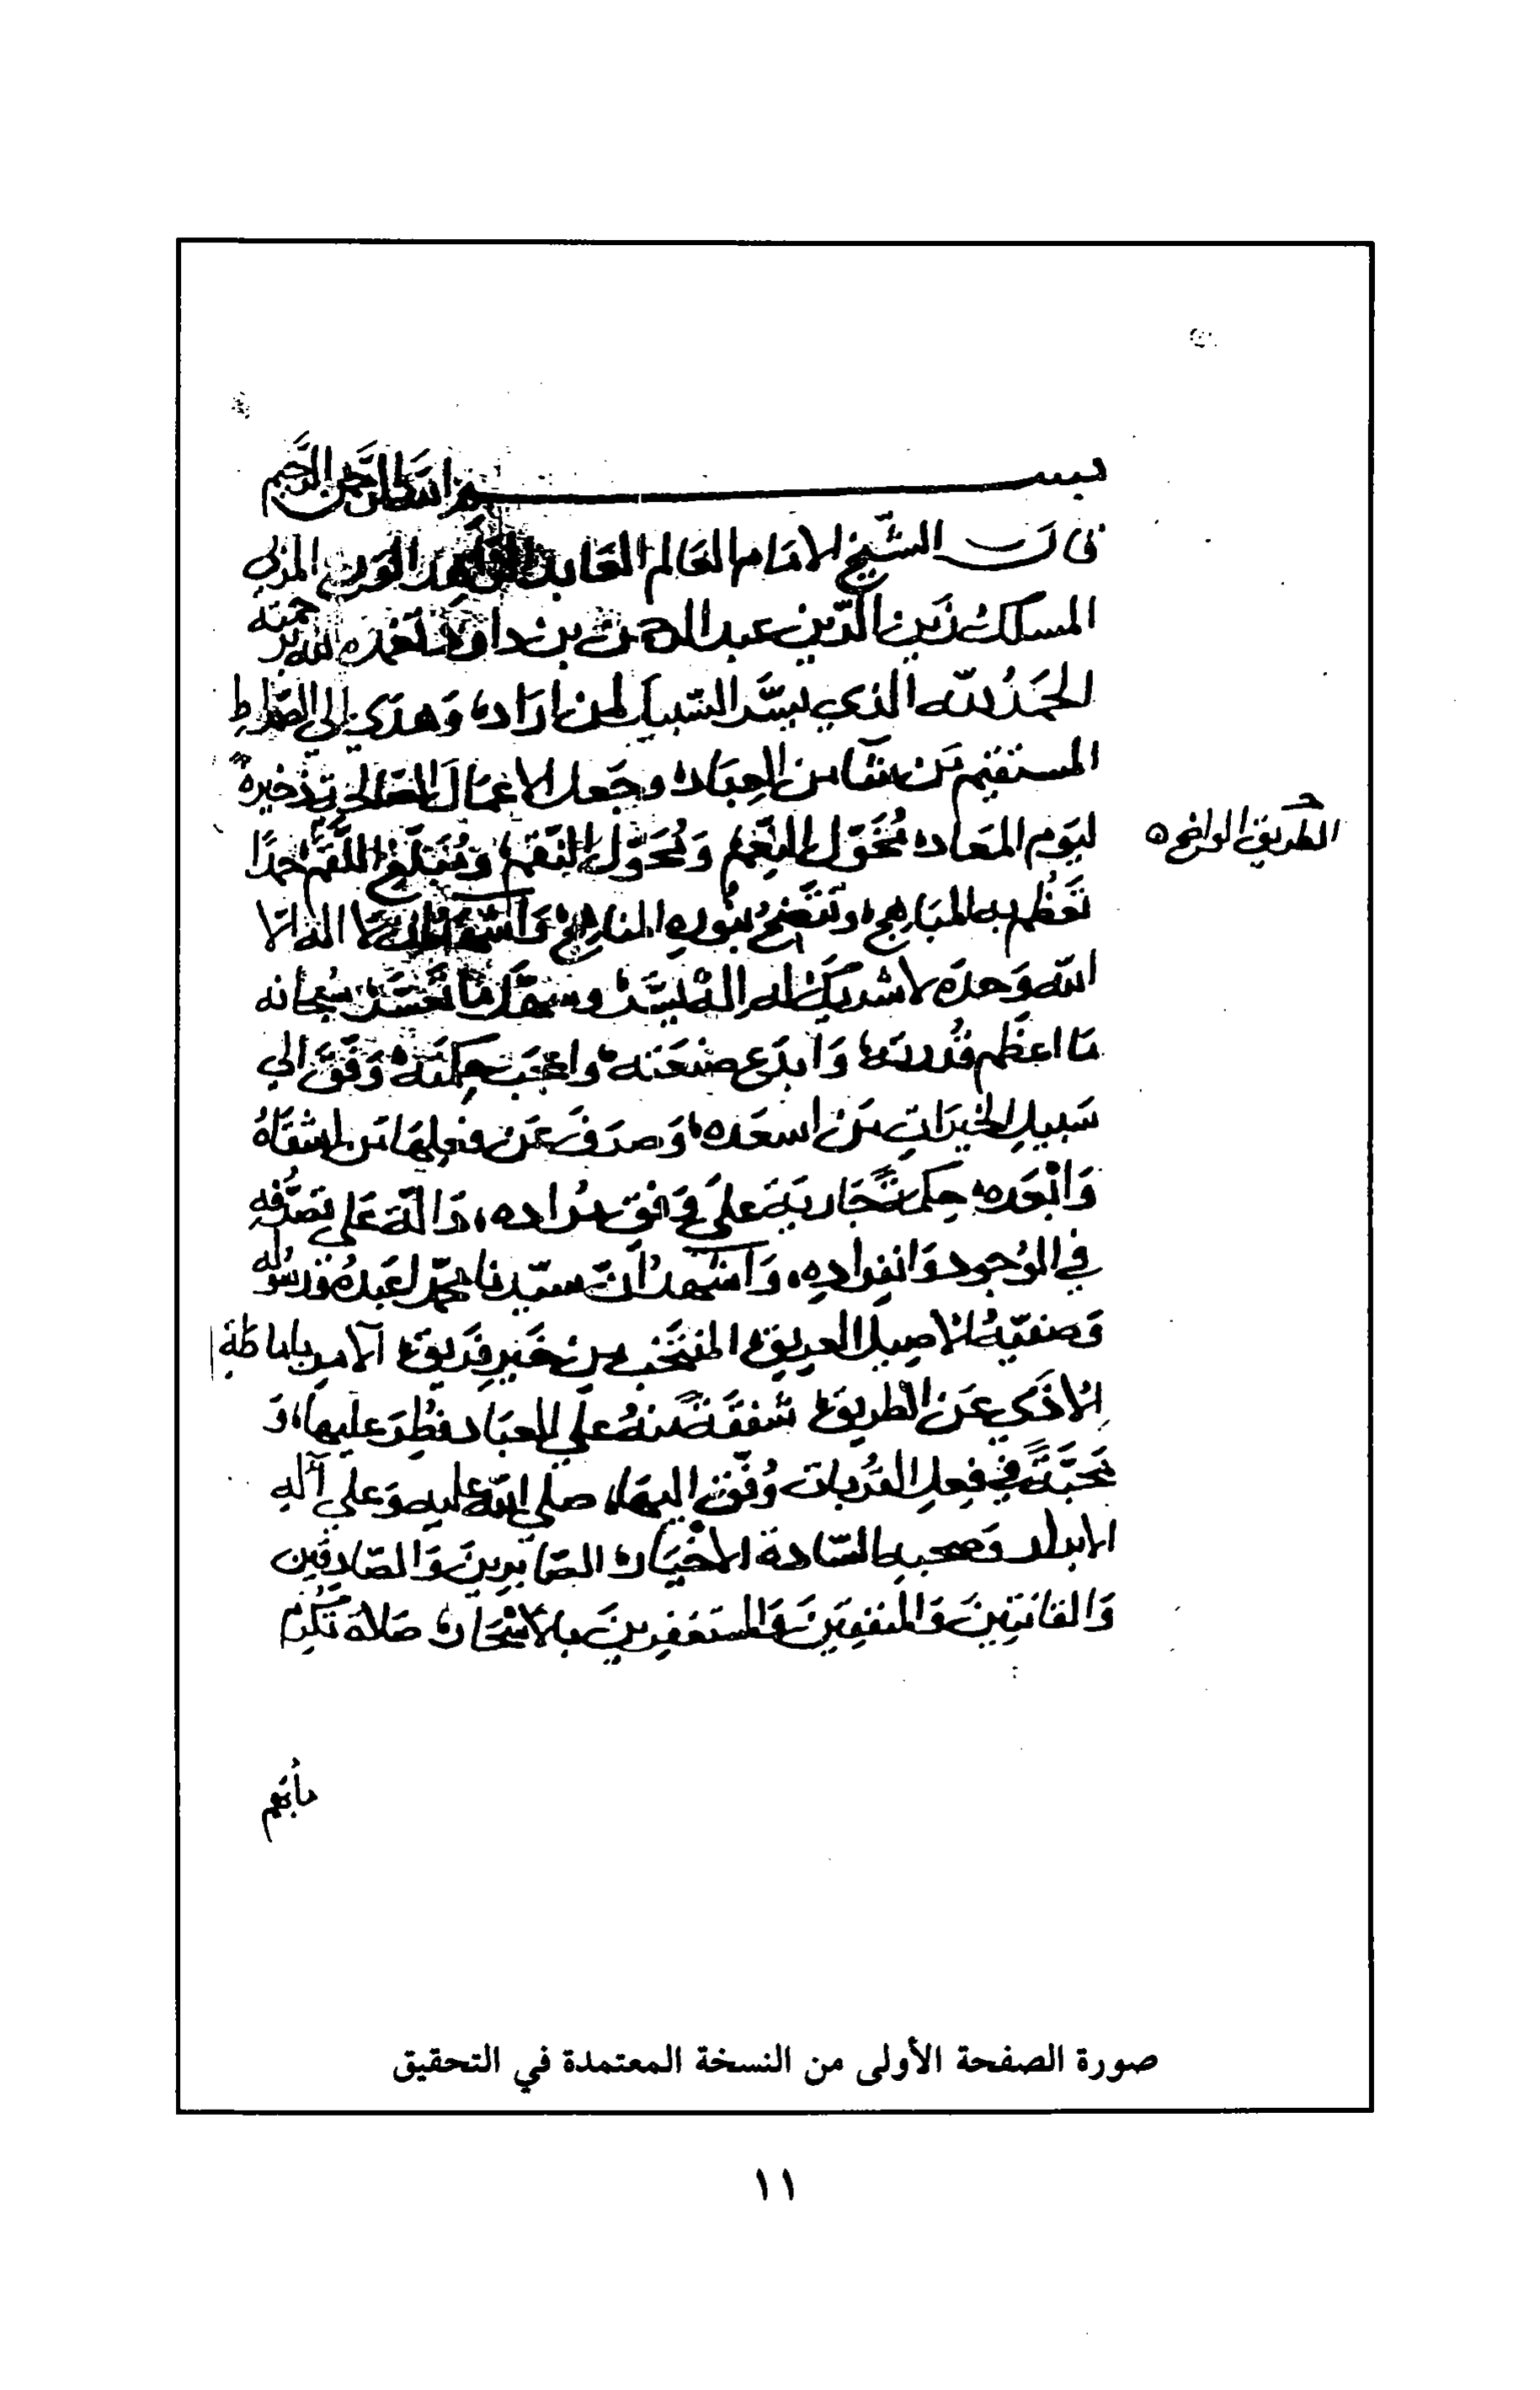 بسم الله الرحمن الرحيم
قال الشيخ الامام العالم العابد الورع المربي
المسلك زين الدين عبد الرحمن بن داود تغمده الله برحمته
الحمد لله الذي يسر السبيل لمن اراد، وهدى الى الصراط
المستقيم من شا من العباد، وجعل الاعمال الصالحة ذخيرة
ليوم المعاد، مخول النعم، ومحول النقم، اللهم حمدا
تعظم به المباهج، وتتضح بنوره المناهج، واشهد ان لا اله الا
الله وحده لا شريك له اله يسر وسهل ما تعسر، سبحانه
ما اعظم قدرته، وابدع صنعته، واعجب حكمته، وفق الى
سبيل الخيرات من اسعده، وصرف عن فعلها من اشقاه
وابعده، حكمة جارية على وفق مراده، دالة على تصرفه
في الوجود وانفراده، واشهد ان سيدنا محمدا عبده ورسوله
وصفيه الاصيل العريق، المنتخب من خير فريق، الامر باماطة
الاذى عن الطريق، شفقة منه على العباد فطر عليها، و
محبة في فعل القربات وفق اليها، صلى الله عليه وعلى آله
الابرار وصحبه السادة الاخيار، الصابرين والصادقين
والقانتين والمنفقين والمستغفرين بالاسحار، صلاة تكرم
الطريق الواضح
صورة الصفحة الأولى من النسخة المعتمدة في التحقيق
١١